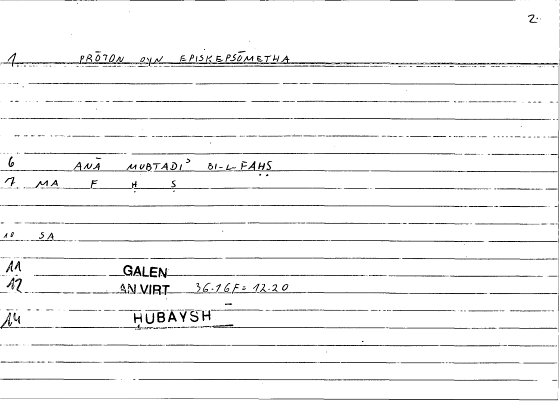 2.
1 PRŌTON OYN EPISKEPSŌMETHA
6 ANĀ MUBTADIʾ BI-L-FAḤṢ
7 MA F Ḥ Ṣ
10 SA
11 GALEN
12 AN VIRT 36.16F = 12.20
14 HUBAYSH